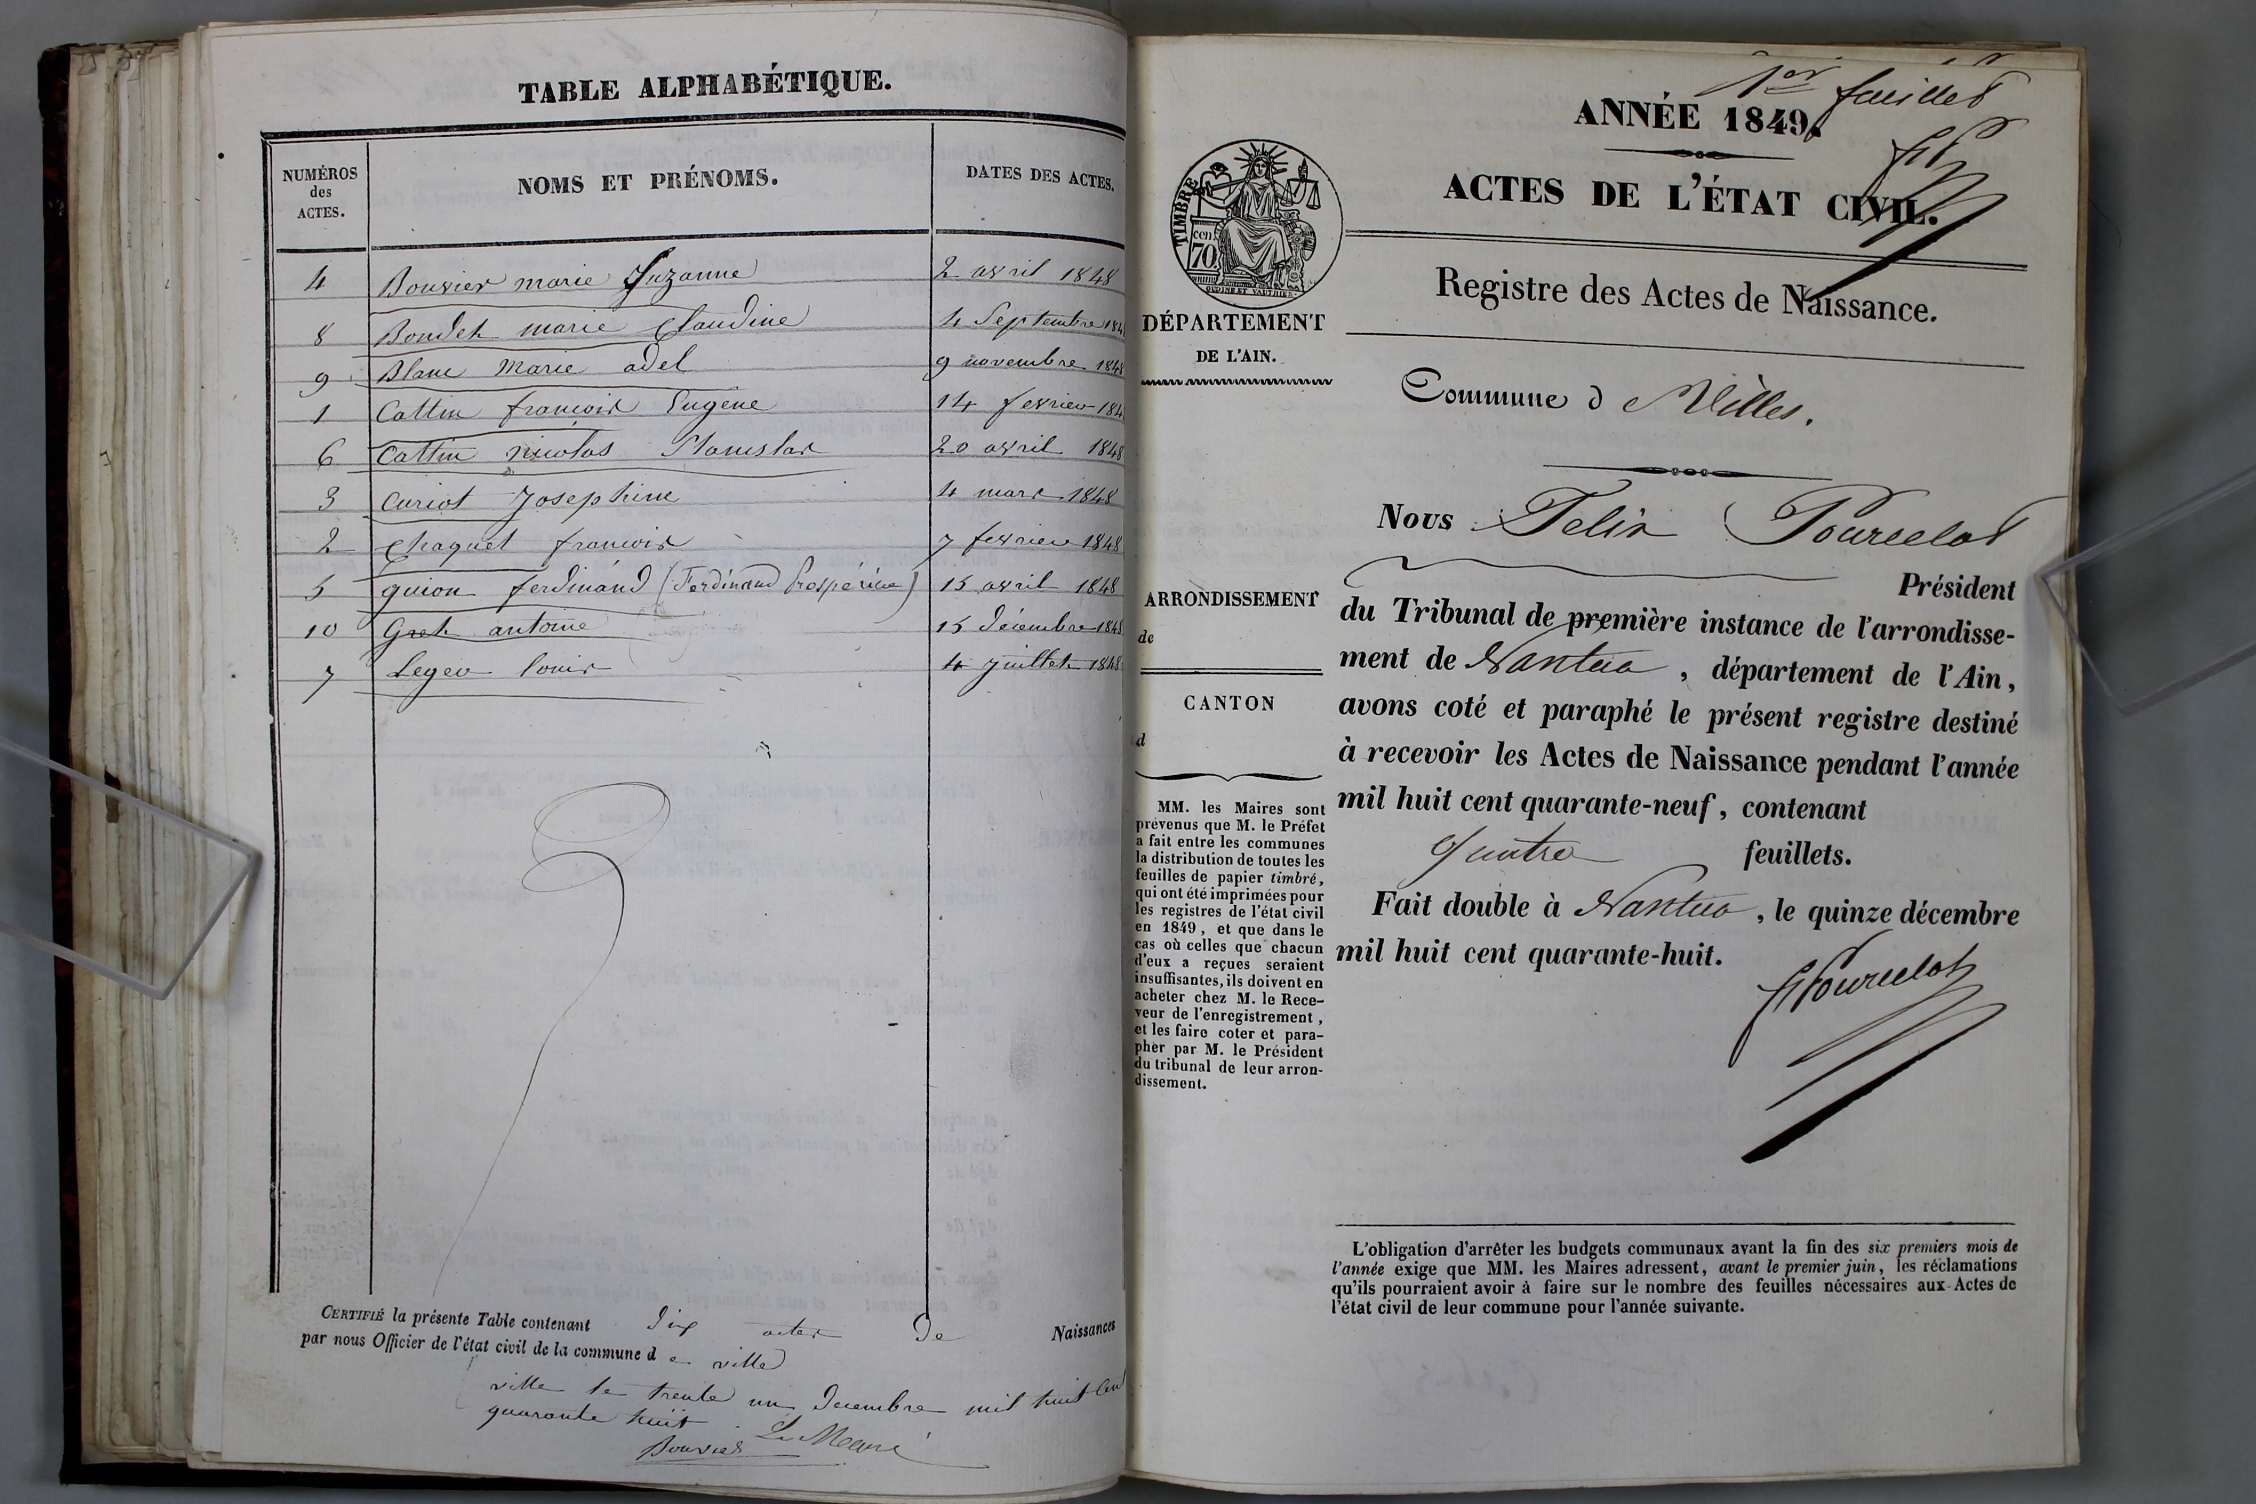 TABLE ALPHABÉTIQUE.
NUMÉROS des ACTES.
NOMS ET PRÉNOMS.
DATES DES ACTES.
4 Bouvier marie Suzanne 2 avril 1848
8 Bondet marie Claudine 4 Septembre 184
9 Blanc Marie adel 9 novembre 1848
1 Cattin francois Eugene 14 fevrier 184
6 Cattin nicolas Stanislas 20 avril 1848
3 Curiot Josephine 4 mars 1848
2 Chaquet francois 7 fevrier 1848
5 guion ferdinand (Ferdinand Prospérine) 15 avril 1848
10 Gret antoine 15 décembre 1848
7 Leger louis 4 juillet 1848
CERTIFIÉ la présente Table contenant dix actes De Naissances
par nous Officier de l'état civil de la commune d e ville
ville le trente un decembre mil huit cen
quarante huit . Le Maire
Bouvier
1er feuillet
ANNÉE 1849.
ACTES DE L'ÉTAT CIVIL.
TIMBRE
cen. 70.
Registre des Actes de Naissance.
DÉPARTEMENT
DE L'AIN.
Commune d Villes.
Nous Felix Pourcelot
Président
du Tribunal de première instance de l'arrondisse-
ment de Nantua , département de l'Ain,
avons coté et paraphé le présent registre destiné
à recevoir les Actes de Naissance pendant l'année
mil huit cent quarante-neuf, contenant
quatre feuillets.
Fait double à Nantua , le quinze décembre
mil huit cent quarante-huit.
Pourcelot
ARRONDISSEMENT
de
CANTON
d
MM. les Maires sont
prévenus que M. le Préfet
a fait entre les communes
la distribution de toutes les
feuilles de papier timbré,
qui ont été imprimées pour
les registres de l'état civil
en 1849, et que dans le
cas où celles que chacun
d'eux a reçues seraient
insuffisantes, ils doivent en
acheter chez M. le Rece-
veur de l'enregistrement,
et les faire coter et para-
pher par M. le Président
du tribunal de leur arron-
dissement.
L'obligation d'arrêter les budgets communaux avant la fin des six premiers mois de
l'année exige que MM. les Maires adressent, avant le premier juin, les réclamations
qu'ils pourraient avoir à faire sur le nombre des feuilles nécessaires aux Actes de
l'état civil de leur commune pour l'année suivante.